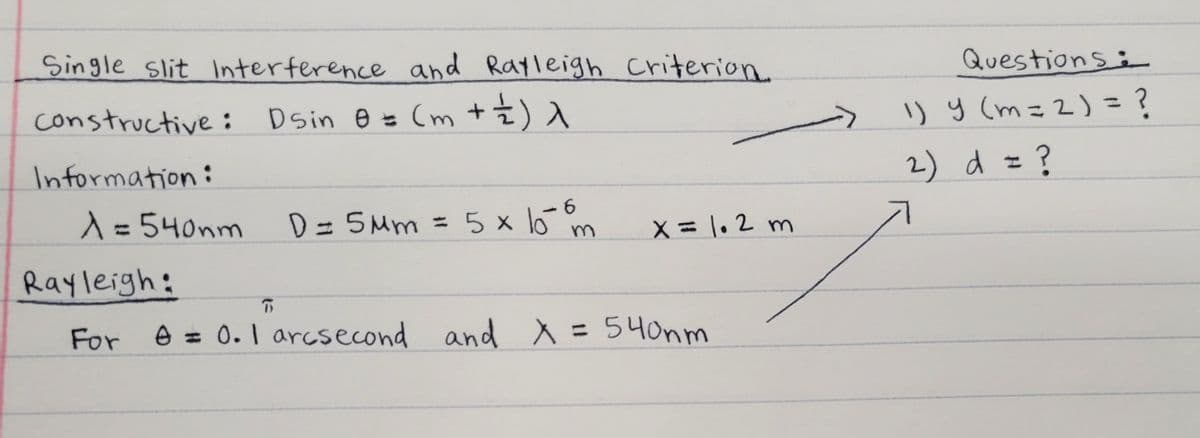 Single slit Interference and Rayleigh criterion.
constructive: Dsin θ = (m + 1/2) λ
Information:
λ = 540nm D = 5μm = 5 x 10⁻⁶ m x = 1.2 m
Rayleigh:
For θ = 0.1 arcsecond and λ = 540nm
Questions:
1) y (m = 2) = ?
2) d = ?